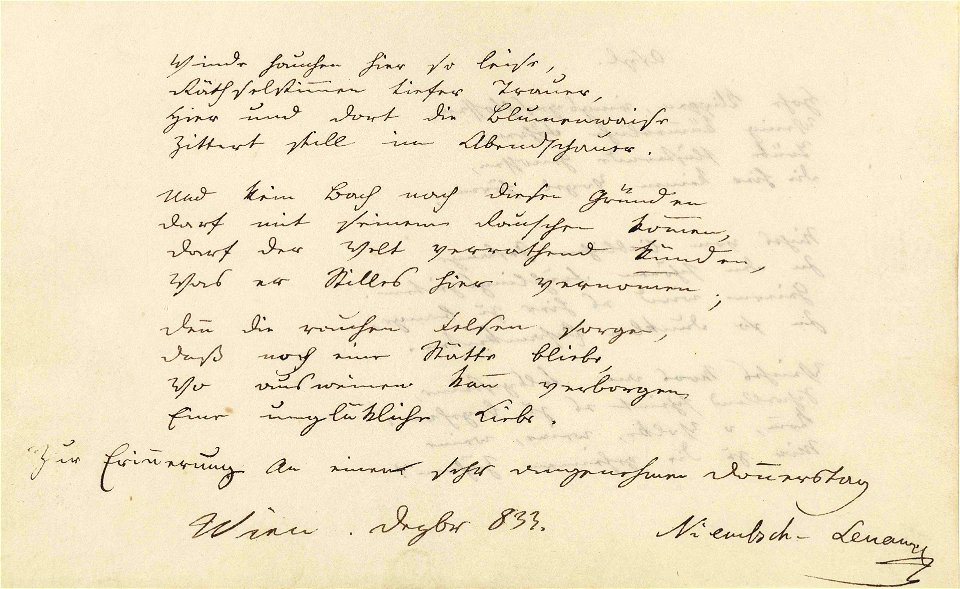 Winde hauchen hier so leise,
Räthselstim̅en tiefer Trauer,
Hier und dort die Blumenwaise
Zittert still im Abendschauer.
Und kein Bach nach diesen Gründen
Darf mit seinem Rauschen kom̅en,
Darf der Welt verrathend künden,
Was er Stilles hier vernom̅en;
Den̅ die rauhen Felsen sorgen,
Daß noch eine Stätte bliebe,
Wo ausweinen kan̅ verborgen
Eine unglükliche Liebe.
Zur Erin̅erung an einen sehr angenehmen Don̅erstag
Wien. Dezbr 833.
Niembsch-Lenau